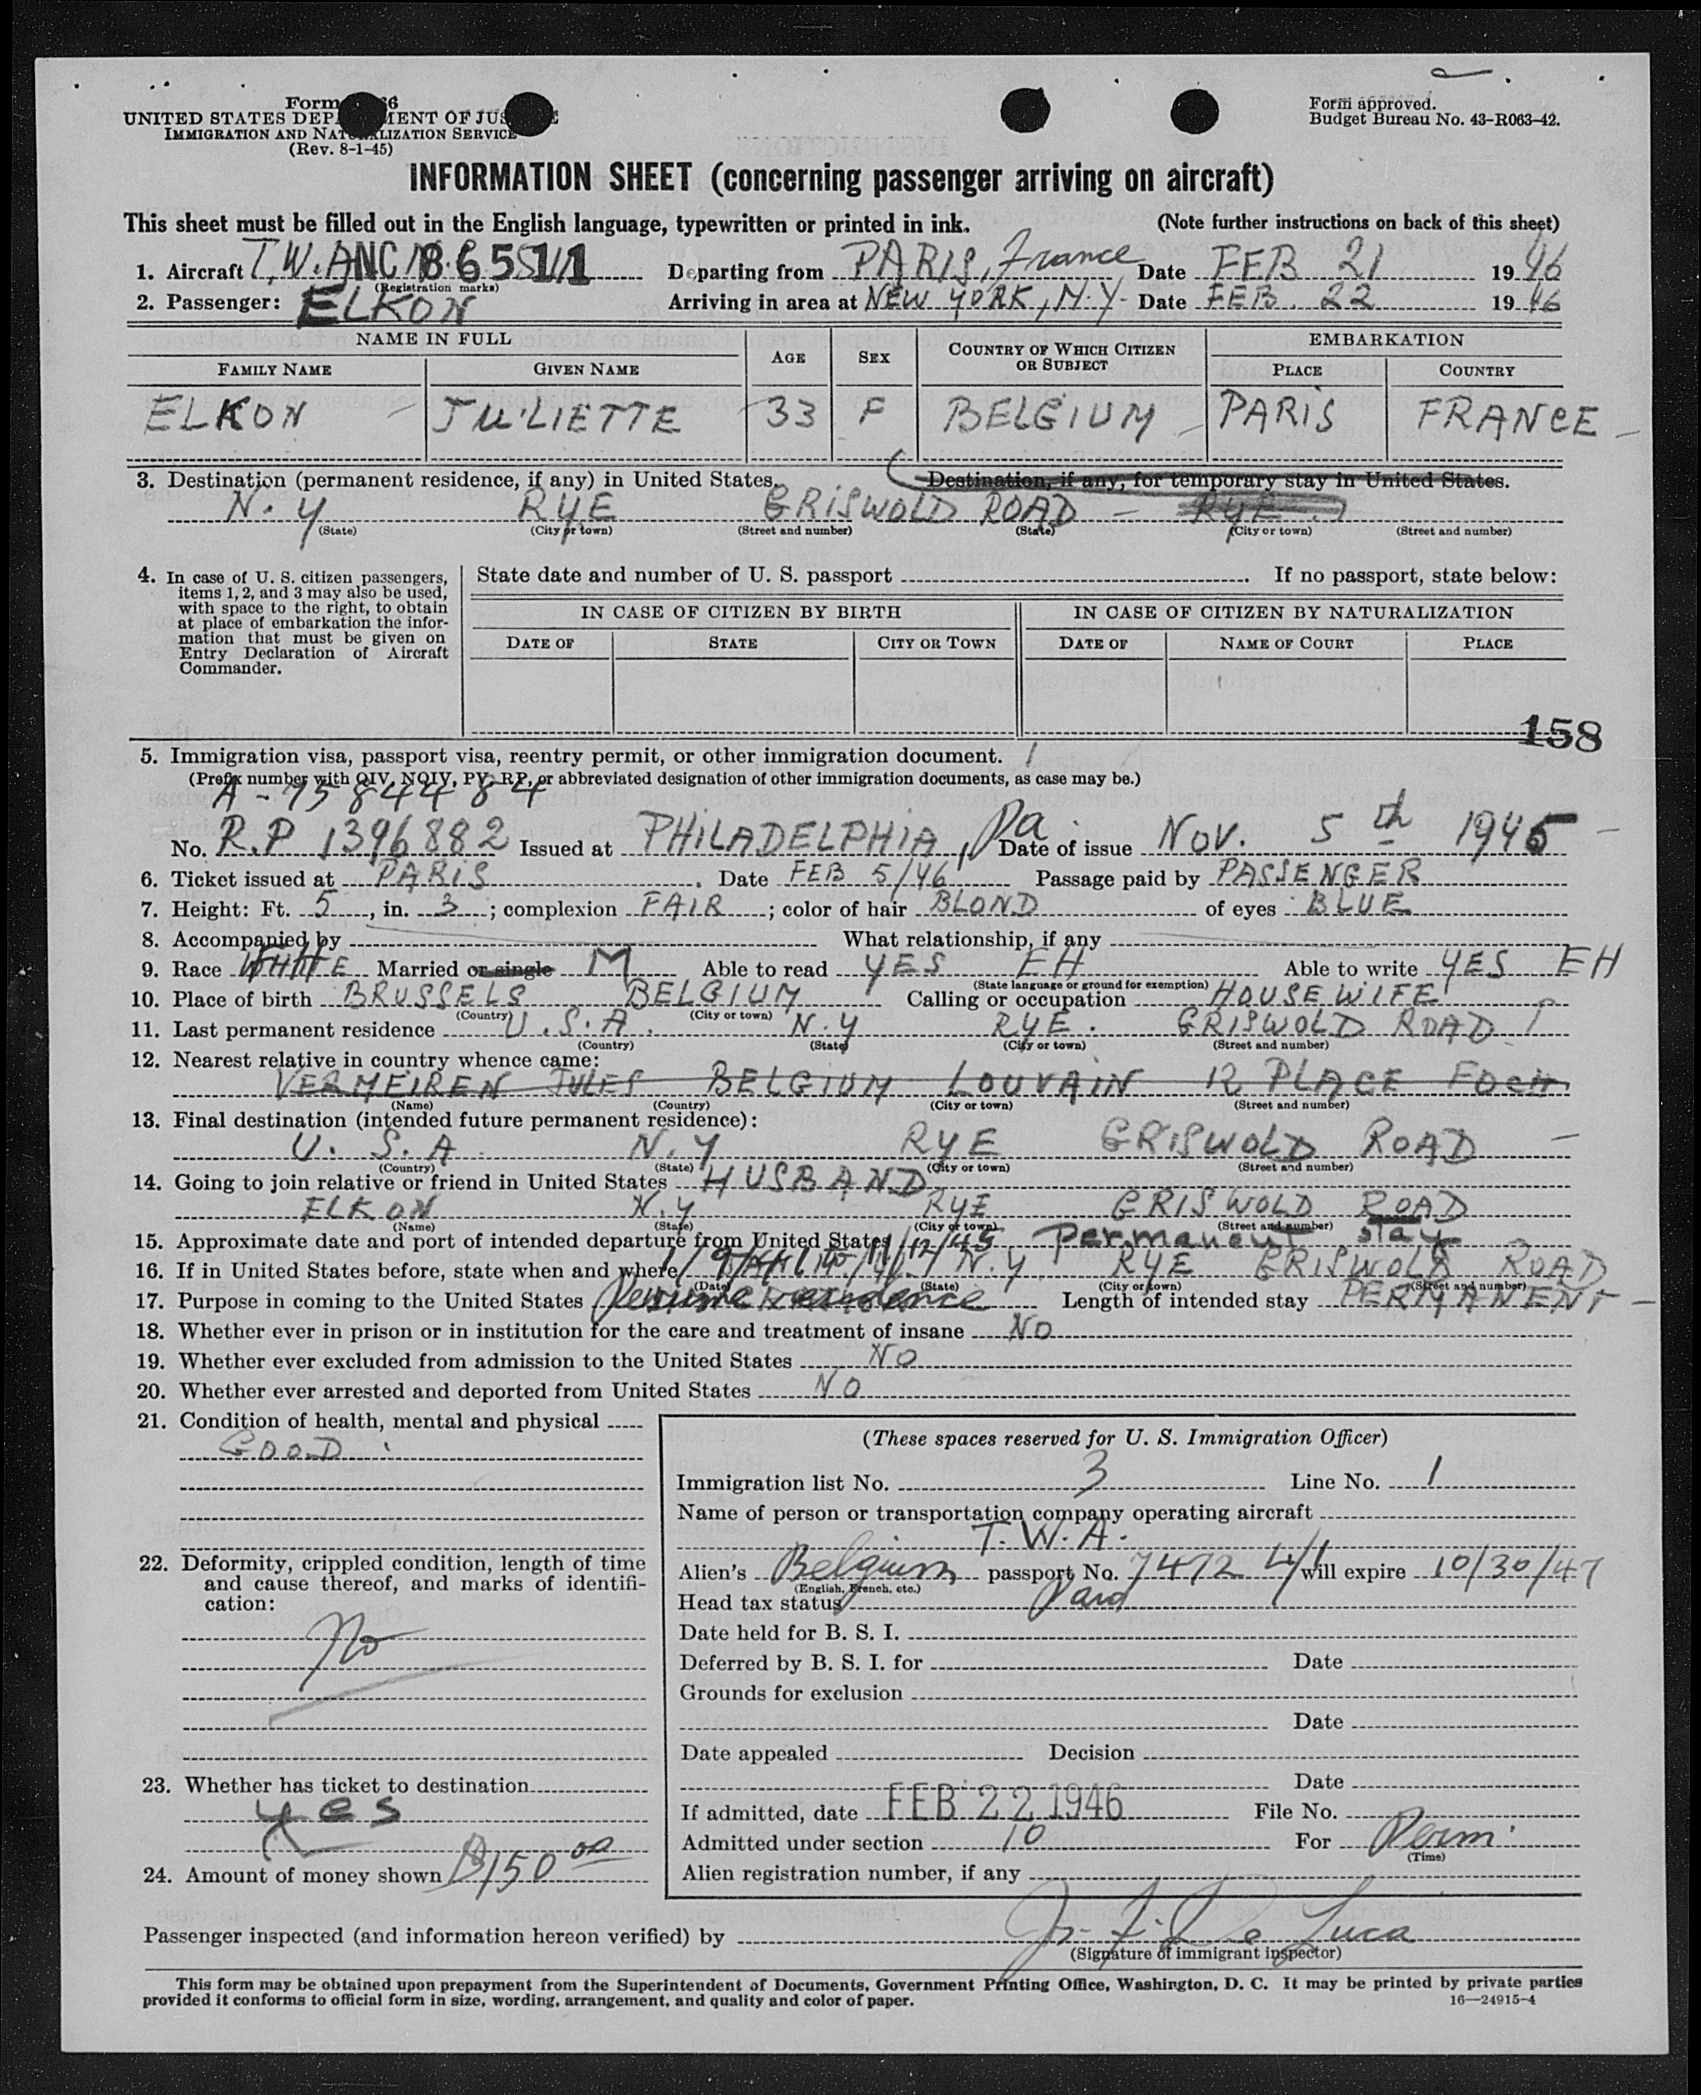 Form 66
UNITED STATES DEPARTMENT OF JUSTICE
IMMIGRATION AND NATURALIZATION SERVICE
(Rev. 8-1-45)
Form approved.
Budget Bureau No. 43-R063-42.
INFORMATION SHEET (concerning passenger arriving on aircraft)
This sheet must be filled out in the English language, typewritten or printed in ink. (Note further instructions on back of this sheet)
1. Aircraft T.W.A NC 86511 Departing from PARIS, France Date FEB 21 1946
(Registration marks)
2. Passenger: ELKON Arriving in area at NEW YORK, N.Y. Date FEB. 22 1946
NAME IN FULL AGE SEX COUNTRY OF WHICH CITIZEN OR SUBJECT EMBARKATION
FAMILY NAME GIVEN NAME PLACE COUNTRY
ELKON JULIETTE 33 F BELGIUM PARIS FRANCE
3. Destination (permanent residence, if any) in United States. Destination, if any, for temporary stay in United States.
N.Y RYE GRISWOLD ROAD – RYE
(State) (City or town) (Street and number) (State) (City or town) (Street and number)
4. In case of U. S. citizen passengers, items 1, 2, and 3 may also be used, with space to the right, to obtain at place of embarkation the information that must be given on Entry Declaration of Aircraft Commander.
State date and number of U. S. passport . If no passport, state below:
IN CASE OF CITIZEN BY BIRTH IN CASE OF CITIZEN BY NATURALIZATION
DATE OF STATE CITY OR TOWN DATE OF NAME OF COURT PLACE
158
5. Immigration visa, passport visa, reentry permit, or other immigration document.
(Prefix number with QIV, NQIV, PV, RP, or abbreviated designation of other immigration documents, as case may be.)
A-7584484
No. R.P 1396882 Issued at PHILADELPHIA, Pa. Date of issue NOV. 5th 1945
6. Ticket issued at PARIS . Date FEB 5/46 Passage paid by PASSENGER
7. Height: Ft. 5, in. 3; complexion FAIR; color of hair BLOND of eyes BLUE
8. Accompanied by What relationship, if any
9. Race WHITE Married or single M Able to read YES EH Able to write YES EH
(State language or ground for exemption)
10. Place of birth BRUSSELS BELGIUM Calling or occupation HOUSEWIFE
(Country) (City or town)
11. Last permanent residence U.S.A. N.Y RYE. GRISWOLD ROAD
(Country) (State) (City or town) (Street and number)
12. Nearest relative in country whence came:
VERMEIREN JULES BELGIUM LOUVAIN 12 PLACE FOCH
(Name) (Country) (City or town) (Street and number)
13. Final destination (intended future permanent residence):
U.S.A N.Y RYE GRISWOLD ROAD
(Country) (State) (City or town) (Street and number)
14. Going to join relative or friend in United States HUSBAND
ELKON N.Y RYE GRISWOLD ROAD
(Name) (State) (City or town) (Street and number)
15. Approximate date and port of intended departure from United States Permanent stay
16. If in United States before, state when and where 11/12/45 N.Y. RYE GRISWOLD ROAD
(Date) (State) (City or town) (Street and number)
17. Purpose in coming to the United States Resume residence Length of intended stay PERMANENT
18. Whether ever in prison or in institution for the care and treatment of insane NO
19. Whether ever excluded from admission to the United States NO
20. Whether ever arrested and deported from United States NO
21. Condition of health, mental and physical
GOOD
22. Deformity, crippled condition, length of time and cause thereof, and marks of identification:
No
23. Whether has ticket to destination
yes
24. Amount of money shown $150.00
(These spaces reserved for U. S. Immigration Officer)
Immigration list No. 3 Line No. 1
Name of person or transportation company operating aircraft
T.W.A.
Alien's Belgium passport No. 7472 4/1 will expire 10/30/47
(English, French, etc.)
Head tax status Paid
Date held for B. S. I.
Deferred by B. S. I. for Date
Grounds for exclusion
Date
Date appealed Decision
Date
If admitted, date FEB 22 1946 File No.
Admitted under section 10 For Perm.
(Time)
Alien registration number, if any
Passenger inspected (and information hereon verified) by De Luca
(Signature of immigrant inspector)
This form may be obtained upon prepayment from the Superintendent of Documents, Government Printing Office, Washington, D. C. It may be printed by private parties
provided it conforms to official form in size, wording, arrangement, and quality and color of paper. 16—24915-4